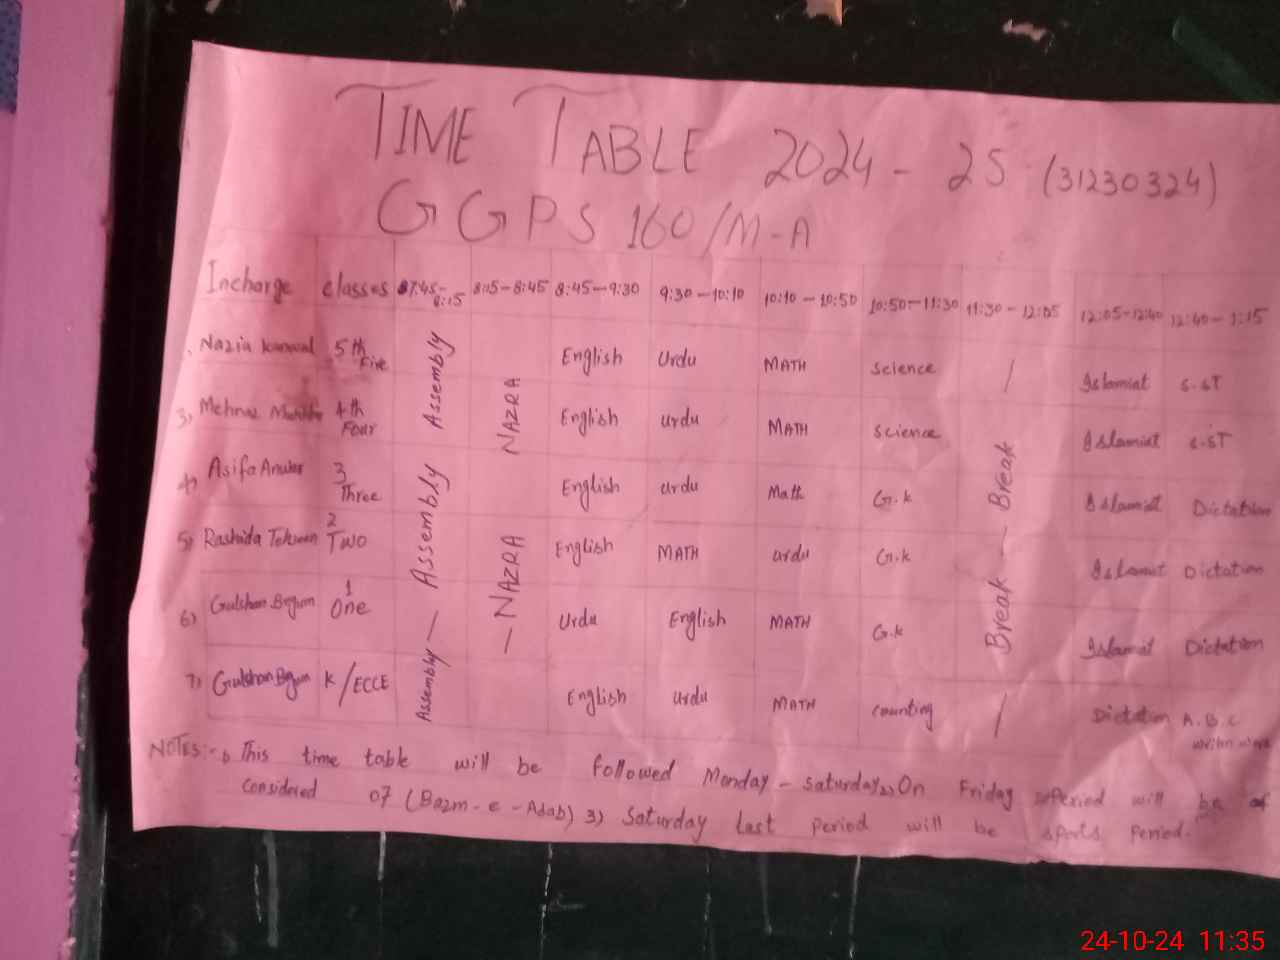 TIME TABLE 2024 - 25 (31230324)
GGPS 160/M-A
Incharge classes 07:45-8:15 8:15-8:45 8:45-9:30 9:30-10:10 10:10-10:50 10:50-11:30 11:30-12:05 12:05-12:40 12:40-1:15
Nazia kanwal 5th Five Assembly NAZRA English Urdu MATH Science / Islamiat S.ST
3) Mehnaz 4th Four English urdu MATH Science Break Islamiat S.ST
4) Asifa Anwar 3 Three Assembly English urdu Math G.k Islamiat Dictation
5) Rashida 2 Two NAZRA English MATH urdu G.k Break Islamiat Dictation
6) Gulshan Begum 1 One Urdu English MATH G.k Islamiat Dictation
7) Gulshan Begum K/ECCE Assembly English urdu MATH counting / Dictation A.B.C
NOTES:- 1) This time table will be followed Monday - Saturday 2) On Friday period will be of
considered of (Bazm-e-Adab) 3) Saturday last period will be sports period.
24-10-24 11:35